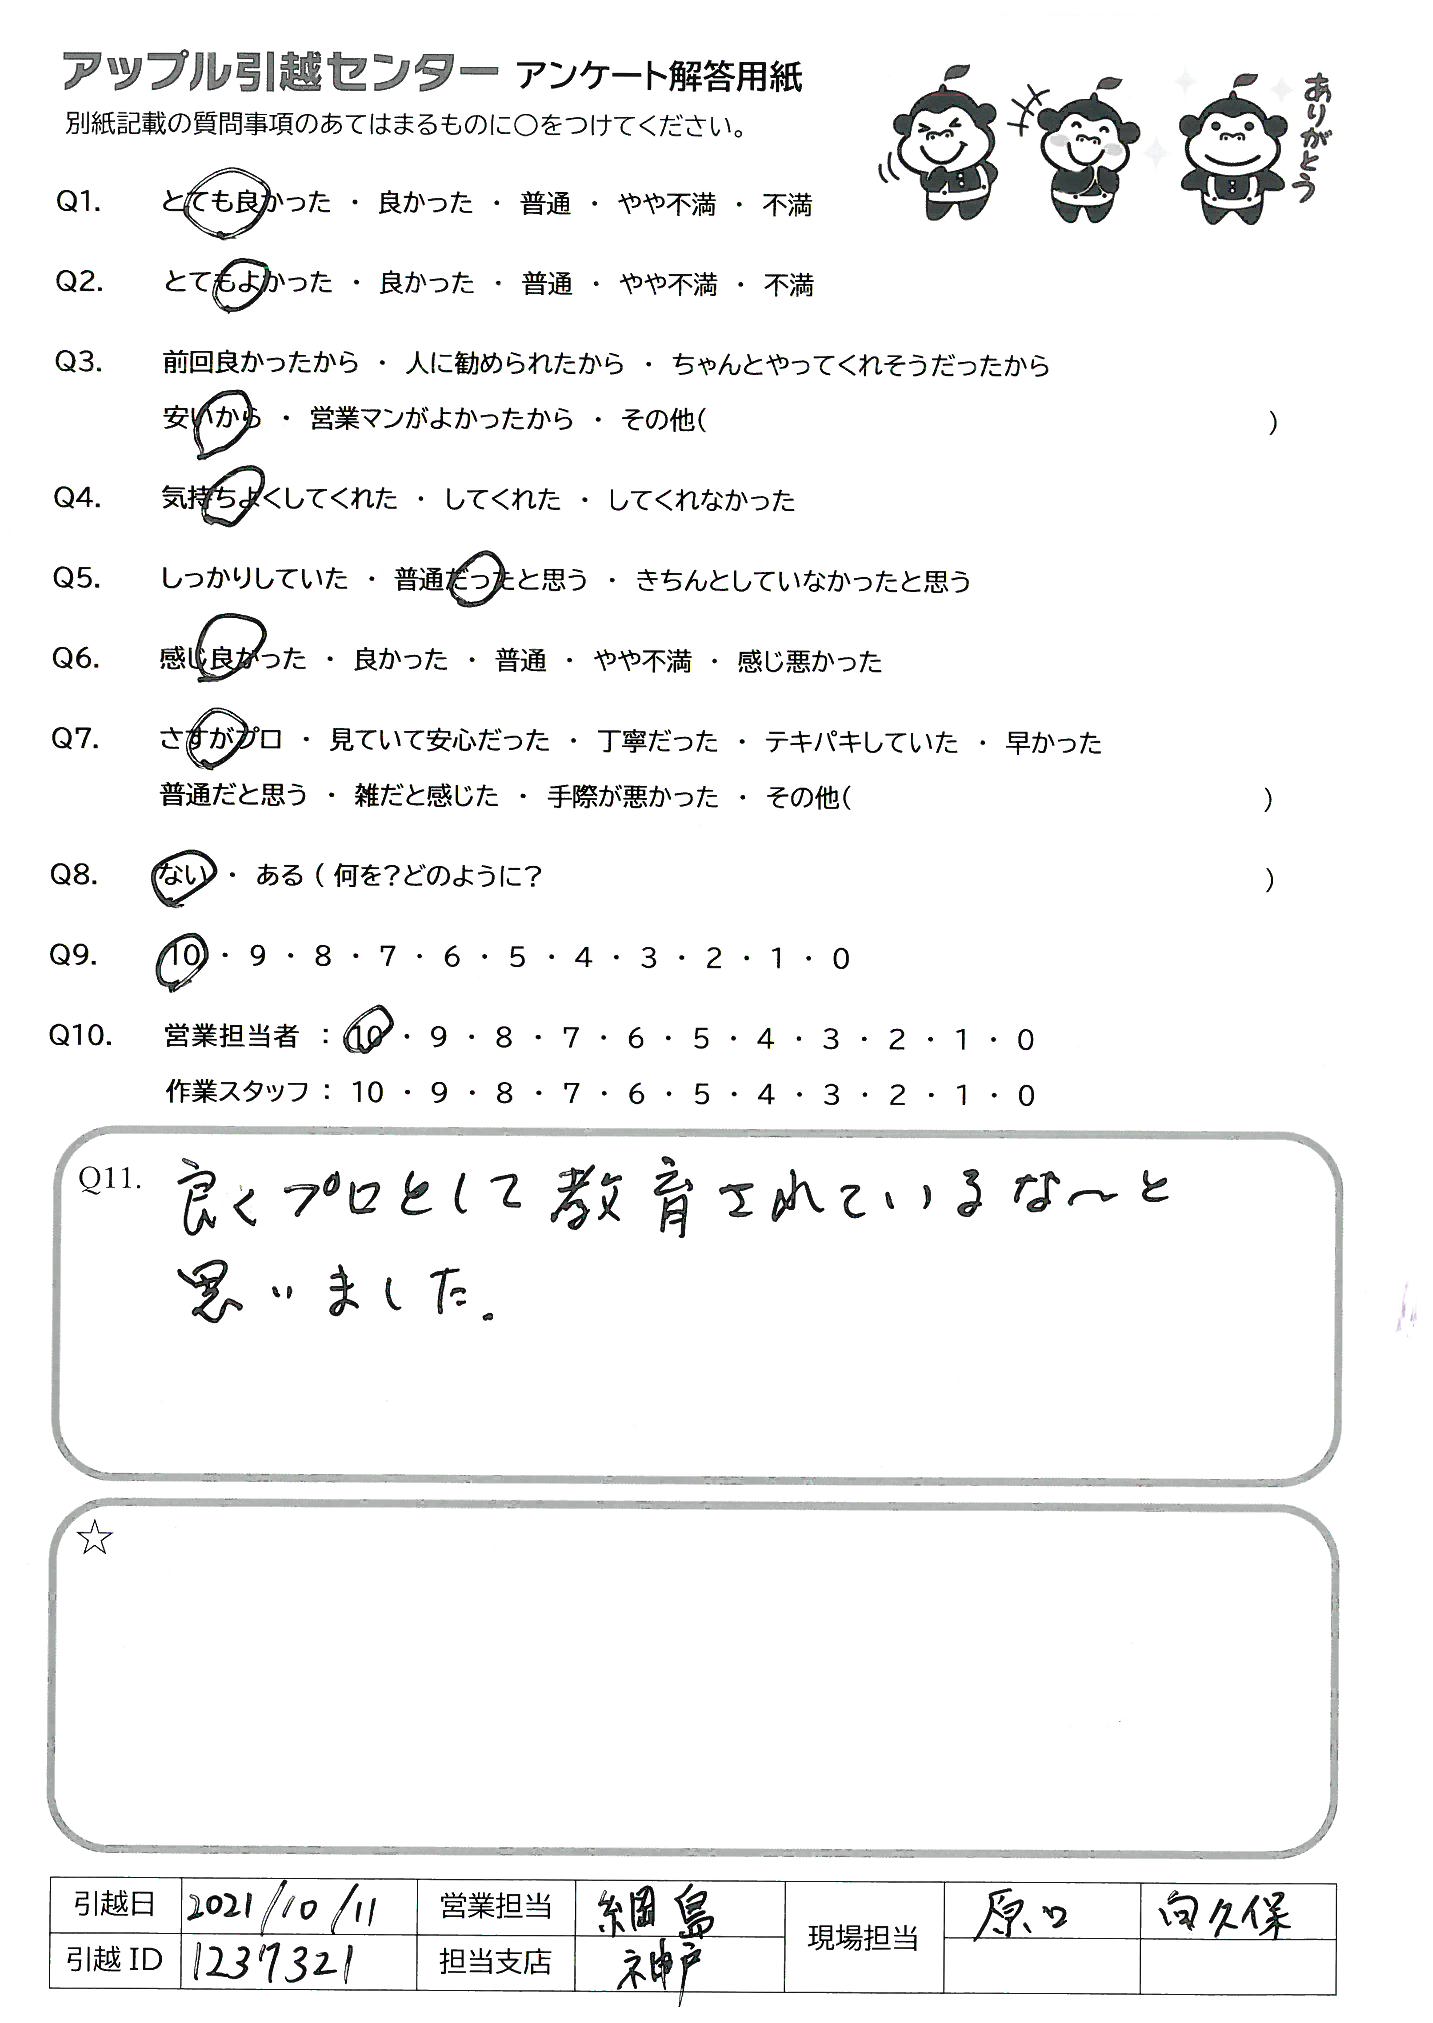 アップル引越センター アンケート解答用紙
別紙記載の質問事項のあてはまるものに〇をつけてください。
ありがとう
Q1. とても良かった ・ 良かった ・ 普通 ・ やや不満 ・ 不満
Q2. とてもよかった ・ 良かった ・ 普通 ・ やや不満 ・ 不満
Q3. 前回良かったから ・ 人に勧められたから ・ ちゃんとやってくれそうだったから
安いから ・ 営業マンがよかったから ・ その他( )
Q4. 気持ちよくしてくれた ・ してくれた ・ してくれなかった
Q5. しっかりしていた ・ 普通だったと思う ・ きちんとしていなかったと思う
Q6. 感じ良かった ・ 良かった ・ 普通 ・ やや不満 ・ 感じ悪かった
Q7. さすがプロ ・ 見ていて安心だった ・ 丁寧だった ・ テキパキしていた ・ 早かった
普通だと思う ・ 雑だと感じた ・ 手際が悪かった ・ その他( )
Q8. ない ・ ある ( 何を?どのように? )
Q9. 10 ・ 9 ・ 8 ・ 7 ・ 6 ・ 5 ・ 4 ・ 3 ・ 2 ・ 1 ・ 0
Q10. 営業担当者 : 10 ・ 9 ・ 8 ・ 7 ・ 6 ・ 5 ・ 4 ・ 3 ・ 2 ・ 1 ・ 0
作業スタッフ : 10 ・ 9 ・ 8 ・ 7 ・ 6 ・ 5 ・ 4 ・ 3 ・ 2 ・ 1 ・ 0
Q11. 良くプロとして教育されているな〜と
思いました.
☆
引越日 2021/10/11 営業担当 綱島 現場担当 原口 向久保
引越 ID 1237321 担当支店 神戸